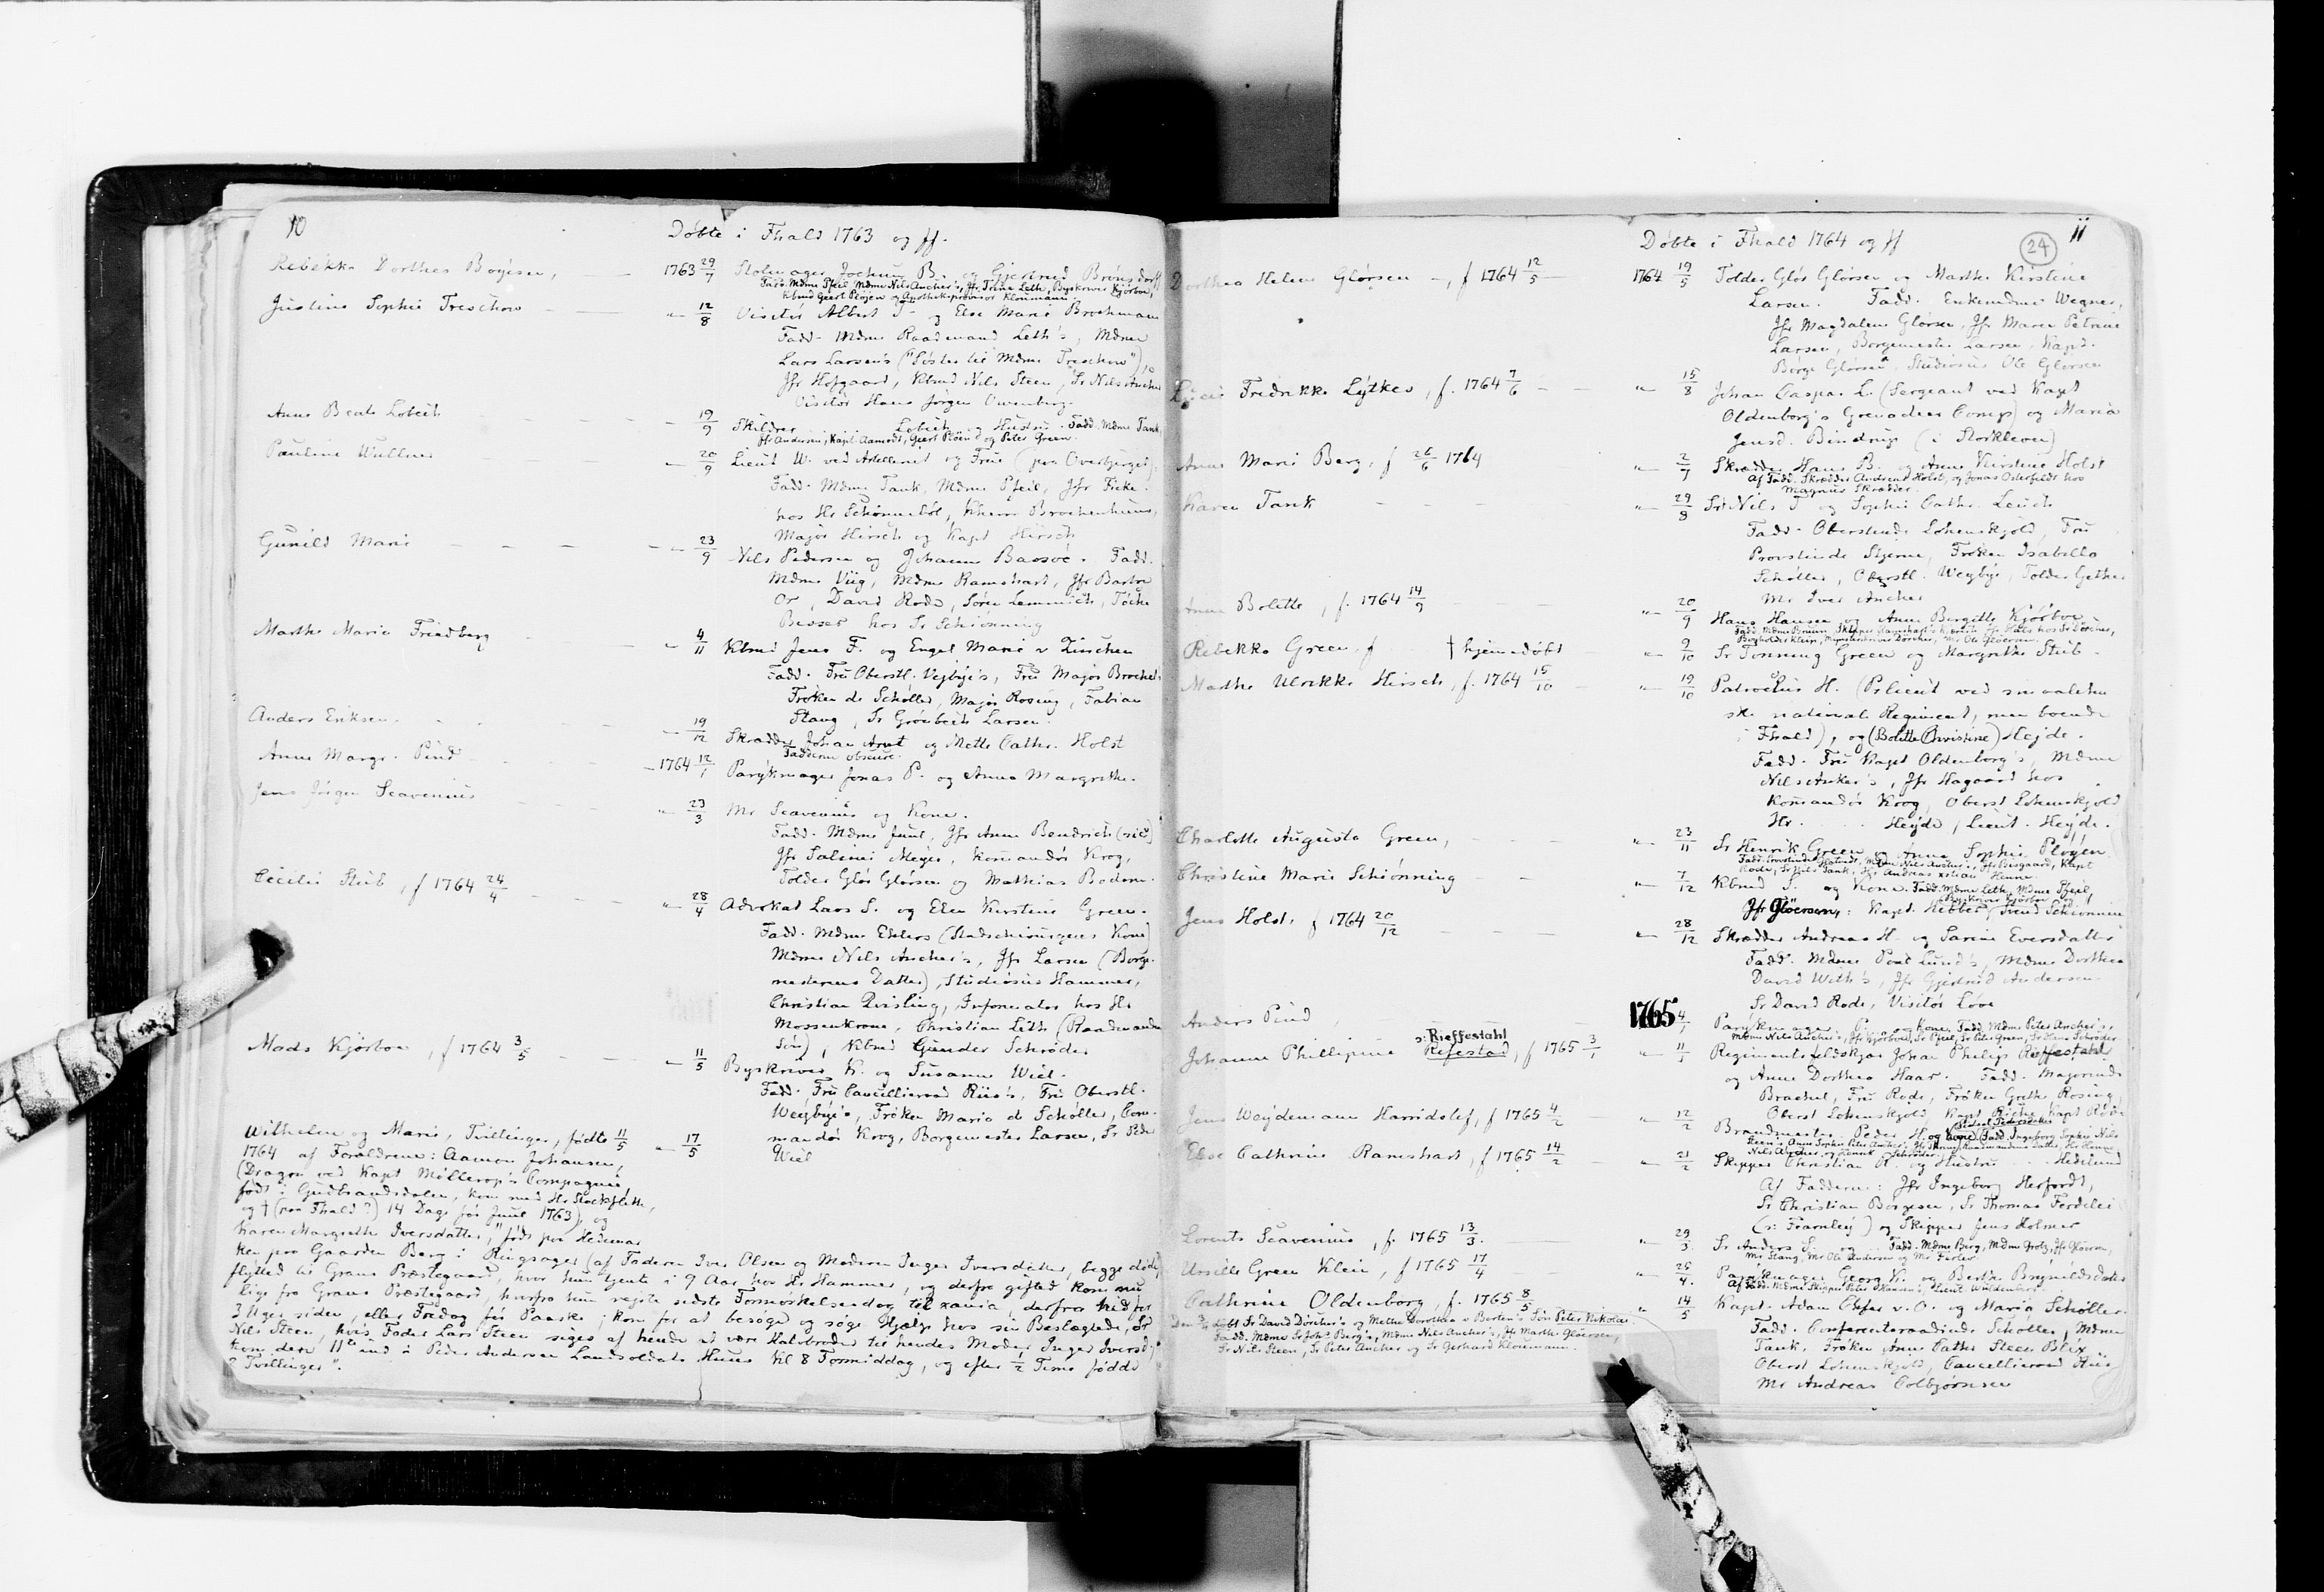 10
Døbte i Fhald 1763 og ff.
Rebekka Dorthea Boyesen, 1763 29/7 Stolmager Jochum B. og Gjertrud Brünsdorff
Fadd. Mdme Pfeil, Mdme Nils Ancher's, Jfr Trine Leth, Byskriver Kjørboe,
Kbmd Geert Pløjen og Apothekprovisor Kloumann.
Justine Sophie Treschow " 12/8 Visitør Albert T. og Else Marie Brochmann
Fadd. Mdme Raadmand Leth's, Mdme
Lars Larsen's ("Søster til Mdme Treschow"),
Jfr Hofgaard, Kbmd Nils Steen, Sr Nils Ancher
Visitør Hans Jørgen
Anne Beate Lobeck " 19/9 Skildrer Lobeck og Hustru. Fadd. Mdme Tank
Jfr Andersen, Kapt. Aamodt, Geert Pløen og Peter Green.
Pauline Wullner " 20/9 Lieut W. ved Artelleriet og Frue (paa Overbjerget).
Fadd. Mdme Tank, Mdme Pfeil, Jfr Ficke
hos Hr Schønnebøl, Khere Brochenhuus,
Major Hirsch og Kapt Hirsch
Gunild Marie " 23/9 Nils Pedersen og Johanne Baasøe. Fadd.
Mdme Viig, Mdme Ramshart, Jfr Barbra
Or, David Rode, Søren Lemmich, Tøcke
Besser hos Sr Schiønning
Marthe Maria Friedberg " 4/11 Kbmd Jens F. og Engel Marie v Zisschen
Fadd. Fru Oberstl. Vejbye's, Fru Major Brochel,
Frøken de Schøller, Major Rosing, Fabian
Stang, Sr Grønbech Larsen.
Anders Eriksen " 19/12 Skrædder Johan Arnt og Mette Cathr. Holst
Fadderne obscure.
Anne Margr. Pind 1764 12/1 Parykmager Jonas P. og Anna Margrethe.
Jens Jørgen Scavenius " 23/3 Mr Scavenius og Kone.
Fadd. Mdme Juul, Jfr Anne Bendrich (sic)
Jfr Salini Meyer, Komandør Krog,
Tolder Glør Glørsen og Mathias Bodom.
Cecilie Stub, f 1764 24/4 " 28/4 Advokat Lars S. og Elen Kirstine Green.
Fadd. Mdme Ehlers (Stadschirurgens Kone)
Mdme Nils Ancher's, Jfr Larsen (Borge-
mesterens Datter), Studiosus Hammer,
Christian Qvisling, Informator hos Hr
Mossenkrone, Christian Leth (Raadmandens
Søn), Kbmd Gunder Schrøder
Mads Kjørboe, f 1764 3/5 " 11/5 Byskriver K. og Susanne Wiel.
Fadd. Fru Cancelliraad Riis's, Fru Oberstl.
Weybye's, Frøken Maria de Schøller, Com-
mandør Krog, Borgemester Larsen, Sr Peder
Wiel
Wilhelm og Marie, Tvillinger, fødte 11/5 " 17/5
1764 af Forældrene: Aamon Johansen,
(Dragon ved Kapt Møllerop's Compagnie,
født i Gudbrandsdalen, kom med Hr Stockfleth,
og † (paa Fhald?) 14 Dage før Juul 1763), og
Karen Margrethe Iversdatter, "født paa Hedemar
ken paa Gaarden Berg i Ringsager (af Faderen Iver Olsen og Moderen Inger Iversdatter, begge døde),
flytted til Grans Præstegaard, hvor hun tjente i 9 Aar hos Hr Hammer, og derfra gifted kom nu
lige fra Grans Præstegaard, hvorfra hun rejste sidste Formørkelsesdag til Xania, derfra hid for
3 Uger siden, eller Fredag før Paaske; kom for at besøge og søge Hjælp hos sin Beslægtede, Sr
Nils Steen, hvis Fader Lars Steen siges af hende at være Halvbroder til hendes Moder Inger Iversd.;
kom den 11te ind i Peder Andersen Landsoldats Huus Kl 8 Formiddag, og efter 1/2 Time fødde
2 Tvillinger".
Døbte i Fhald 1764 og ff
24
11
Dorthea Helene Glørsen, f 1764 12/5 1764 19/5 Tolder Glør Glørsen og Marthe Kirstine
Larsen. Fadd. Enkemdme Wegner,
Jfr Magdalene Glørsen, Jfr Maren Petrine
Larsen, Borgemester Larsen, Kapt.
Børge Glørsen, Studiosus Ole Glørsen
Fredrikke Lytkes, f. 1764 7/6 " 15/8 Johan Caspar L. (Sergeant ved Kapt
Oldenborg's Grenadeer Comp) og Maria
Jensd. Bindrup (i Storkleven)
Anne Marie Berg, f 26/6 1764 " 2/7 Skrædder Hans B. og Anne Kirstine Holst
Af Fadd. Skrædder Andreas Holst, og Jonas Osterfeldt hos
Magnus Skrædder.
Karen Tank " 29/8 Sr Nils T og Sophie Cathr. Leuch
Fadd. Oberstinde Lohenskjold, Fru
Provstinde Stjerne, Frøken Isabella
Schøller, Oberstl. Weybye, Tolder Gether
Mr Iver Ancher
Anne Bolette, f. 1764 14/9 " 20/9 Hans Hansen og Anne Birgitte Kjørboe
Rebekka Green f † hjemmedøbt " 9/10 Sr Tønning Green og Margrethe Stub
Marthe Ulrikke Hirsch, f. 1764 15/10 " 19/10 Patroclus H. (Prlieut ved smaalehn
ske national Regiment, men boende
i Fhald), og (Bolette Christine) Hejde.
Fadd. Fru Kapt Oldenborg's, Mdme
Nils Anker's, Jfr Hagaard hos
Komandør Krog, Oberst Lohenskjold
Hr. Heyde, Lieut. Heyde.
Charlotte Augusta Green, " 23/11 Sr Henrik Green og Anna Sophie Pløyen
Christine Marie Schiønning " 7/12 Kbmd S. og Kone. Fadd. Mdme Leth, Mdme Pfeil,
Jfr Gløersen, Kapt. Hebbe,
Jens Holst, f 1764 20/12 " 28/12 Skrædder Andreas H. og Sarine Eversdatter
Fadd. Mdme Poul Lund's, Mdme Dorthea
David With's, Jfr Gjertrud Andersen
Sr David Rode, Visitør Love
Anders Pind, 1765 4/1 Parykmager P. og Kone. Fadd. Mdme Peter Ancher's,
Mdme Nils Ancher's, Jfr Kjørboe, Sr Pfeil, Sr Peter Green, Sr Hans Schrøder
ɔ: Rieffestahl
Johanne Phillipine Refestad, f 1765 3/1 " 11/1 Regimentsfeldskjær Johan Philip Rieffestahl
og Anne Dorthea Haar. Fadd. Majorinde
Brachel, Fru Rode, Frøken Grethe Rosing
Oberst Lohenskjold, Kapt Riche, Kapt Rode
Jens Weydemann Harridslef, f 1765 4/2 " 12/2 Brandmester Peder H. og Kone. Fadd. Ingeborg Sophie Nils
Else Cathrine Ramshart, f 1765 14/2 " 21/2 Skipper Christian R. og Hustru Hedelund
Af Fadderne: Jfr Ingeborg Herfordt,
Sr Christian Børgesen, Sr Thomas Ferdelei
(ɔ: Fearnley) og Skipper Jens Holmer
Lorents Scavenius, f. 1765 13/3. " 29/3. Sr Anders S. og Fadd. Mdme Berg, Mdme Grotz, Jfr Gløersen,
Mr Stang, Mr Ole Andersen og Mr Ferlei
Ursille Green Klein, f 1765 17/4 " 25/4. Parykmager Georg K. og Berthe Brynildsdatter
Cathrine Oldenborg, f. 1765 8/5 " 14/5 Kapt. Adam Chfer v. O. og Maria Schøller
døbt Sr David Dörcher's og Mette Dorothea v Borten's Søn Peter Nikolai
Fadd. Mdme Sr Johs Berg's, Mdme Nils Ancher's, Jfr Marthe Gløersen,
Sr Nils Steen, Sr Peter Ancher og Sr Gerhard Kloumann.
Fadd. Conferentsraadinde Schøller, Mdme
Tank, Frøken Anne Cathr Steen Blix
Oberst Lohenskjold, Cancelliraad Riis
Mr Andreas Colbjørnsen